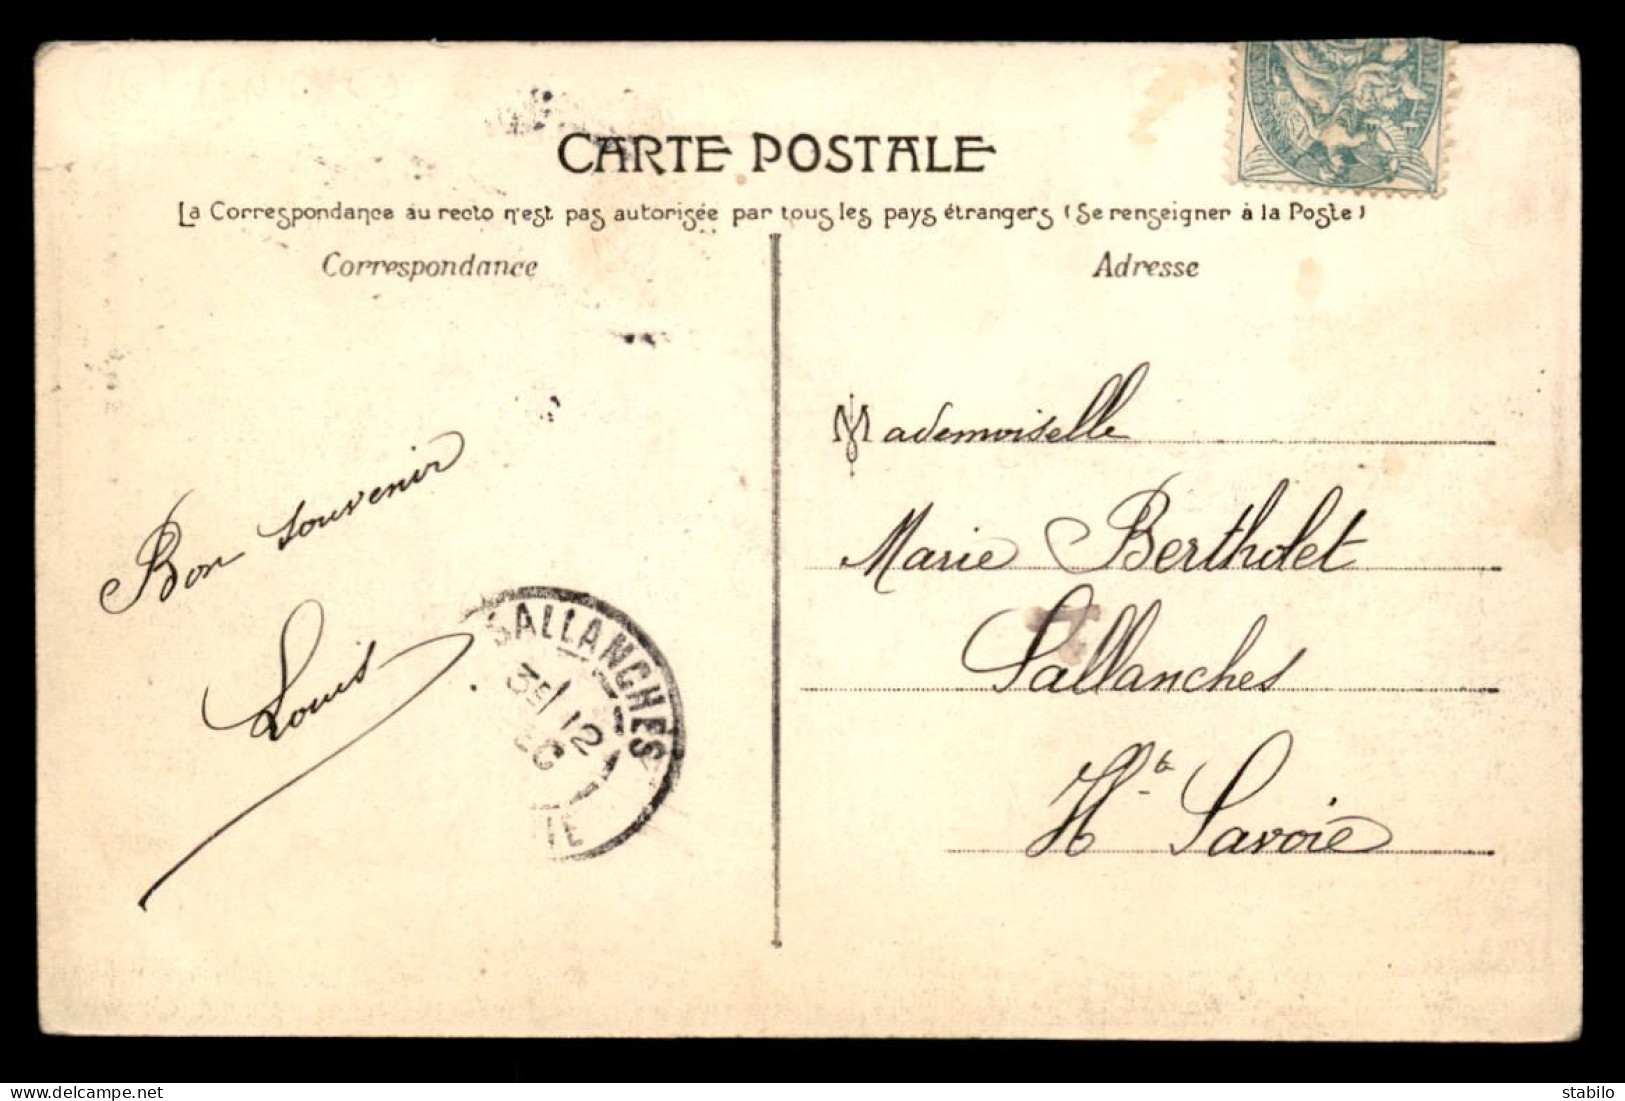 CARTE POSTALE
La Correspondance au recto n'est pas autorisée par tous les pays étrangers (Se renseigner à la Poste)
Correspondance
Adresse
Bon souvenir
Louis
SALLANCHES
12
Mademoiselle
Marie Bertholet
Sallanches
Hte Savoie
delcampe.net
stabilo